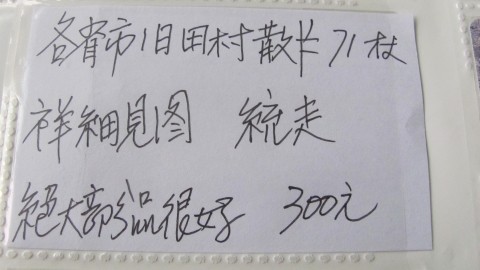 各省市旧田村散卡71枚
祥細見图 統走
絕大部分品很好 300元